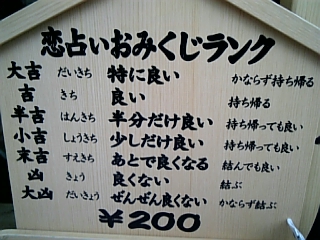 恋占いおみくじランク
大吉 だいきち 特に良い かならず持ち帰る
吉 きち 良い 持ち帰る
半吉 はんきち 半分だけ良い 持ち帰っても良い
小吉 しょうきち 少しだけ良い 持ち帰っても良い
末吉 すえきち あとで良くなる 結んでも良い
凶 きょう 良くない 結ぶ
大凶 だいきょう ぜんぜん良くない かならず結ぶ
¥200